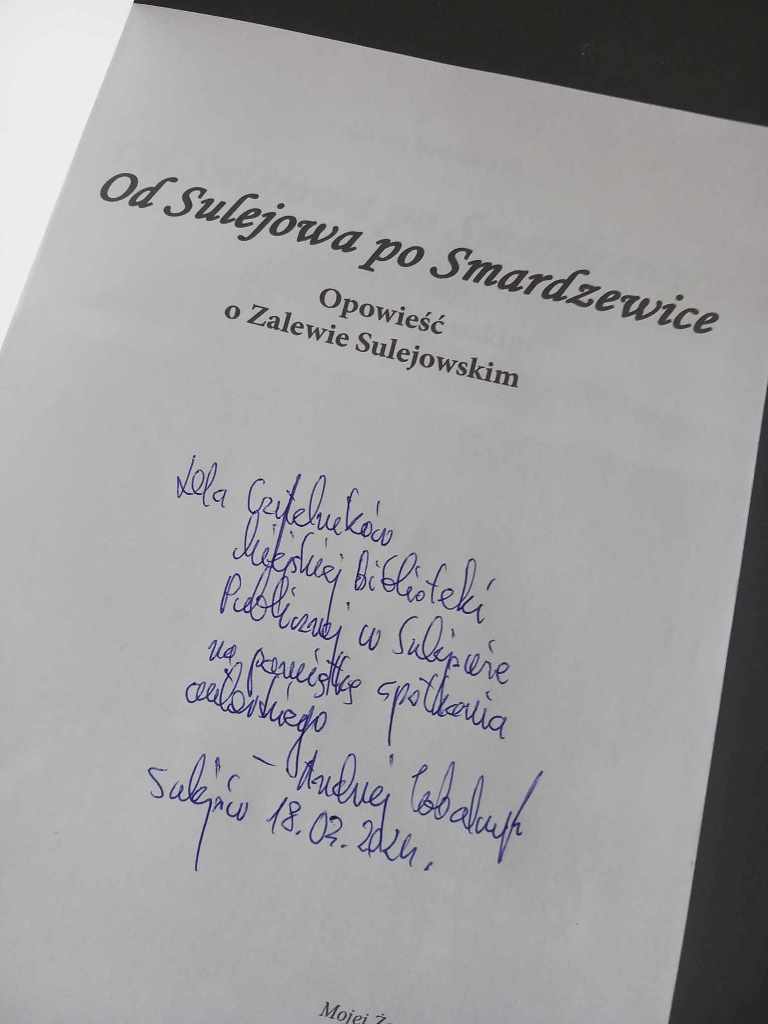 Od Sulejowa po Smardzewice
Opowieść
o Zalewie Sulejowskim
Dla Czytelników
Miejskiej Biblioteki
Publicznej w Sulejowie
na pamiątkę spotkania
autorskiego
– Andrzej
Sulejów 18.07.2024.
Mojej